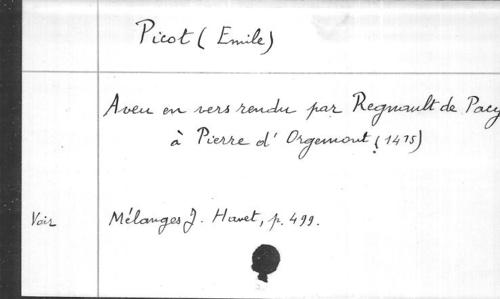 Picot (Emile)
Aveu en vers rendu par Regnault de Pacy
à Pierre d'Orgemont (1475)
Voir Mélanges J. Havet, p. 499.